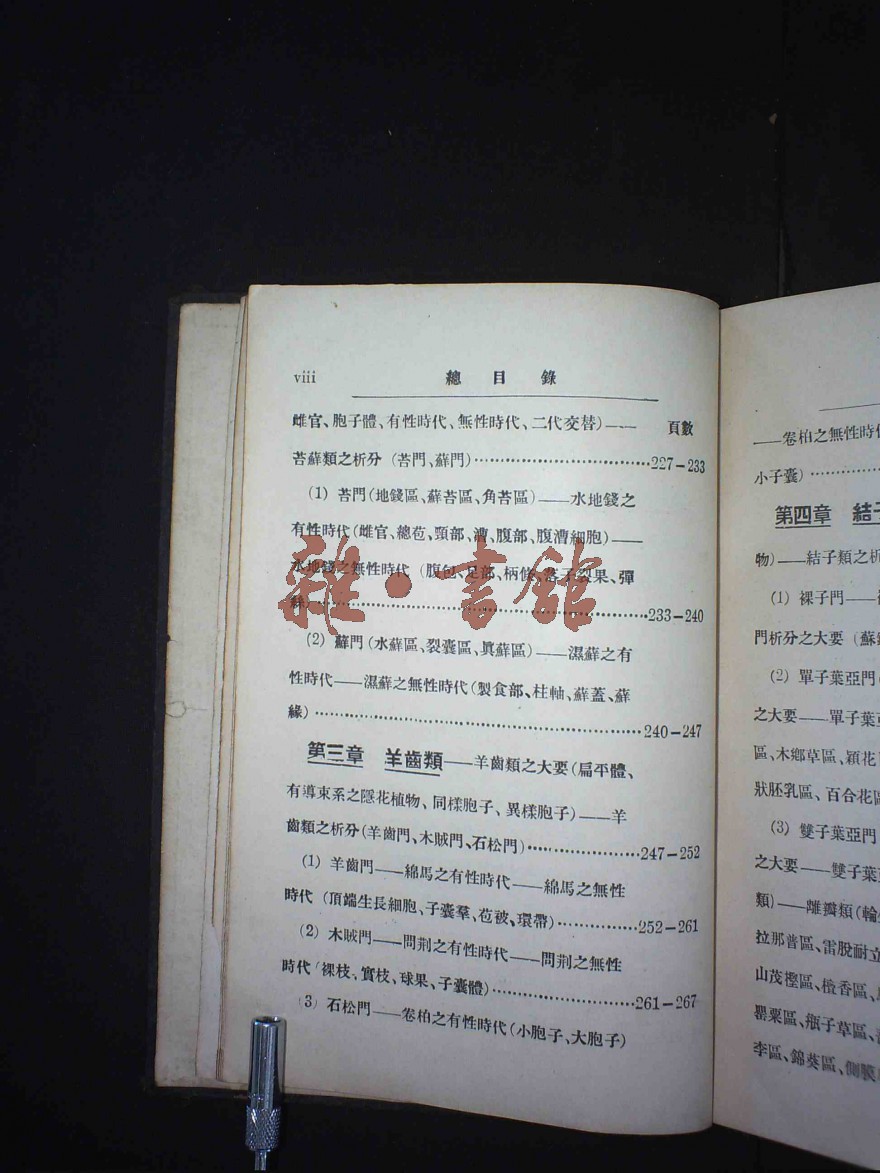 viii 總目錄
雌官、胞子體、有性時代、無性時代、二代交替)—— 頁數
苔蘚類之析分 (苔門、蘚門)……227–233
(1) 苔門(地錢區、蘚苔區、角苔區)——水地錢之
有性時代(雌官、總苞、頸部、漕、腹部、腹漕細胞)——
水地錢之無性時代 (腹包、足部、柄
裂果、彈
絲)……233–240
(2) 蘚門(水蘚區、裂囊區、眞蘚區)——濕蘚之有
性時代——濕蘚之無性時代(製食部、柱軸、蘚蓋、蘚
緣)……240–247
第三章 羊齒類——羊齒類之大要(扁平體、
有導束系之隱花植物、同樣胞子、異樣胞子)——羊
齒類之析分(羊齒門、木賊門、石松門)……247–252
(1) 羊齒門——綿馬之有性時代——綿馬之無性
時代 (頂端生長細胞、子囊羣、苞被、環帶)……252–261
(2) 木賊門——問荆之有性時代——問荆之無性
時代(裸枝、實枝、球果、子囊體)……261–267
(3) 石松門——卷柏之有性時代(小胞子、大胞子)
雜·書館
——卷柏之無性時
小子囊)……
第四章 結
物)——結子類之
(1) 裸子門——
門析分之大要 (蘇
(2) 單子葉亞門
之大要——單子葉
區、木鄉草區、穎花
狀胚乳區、百合花
(3) 雙子葉亞門
之大要——雙子葉
類)——離瓣類(輪
拉那普區、雷脫耐立
山茂樫區、檀香區、
罌粟區、瓶子草區、
李區、錦葵區、側膜